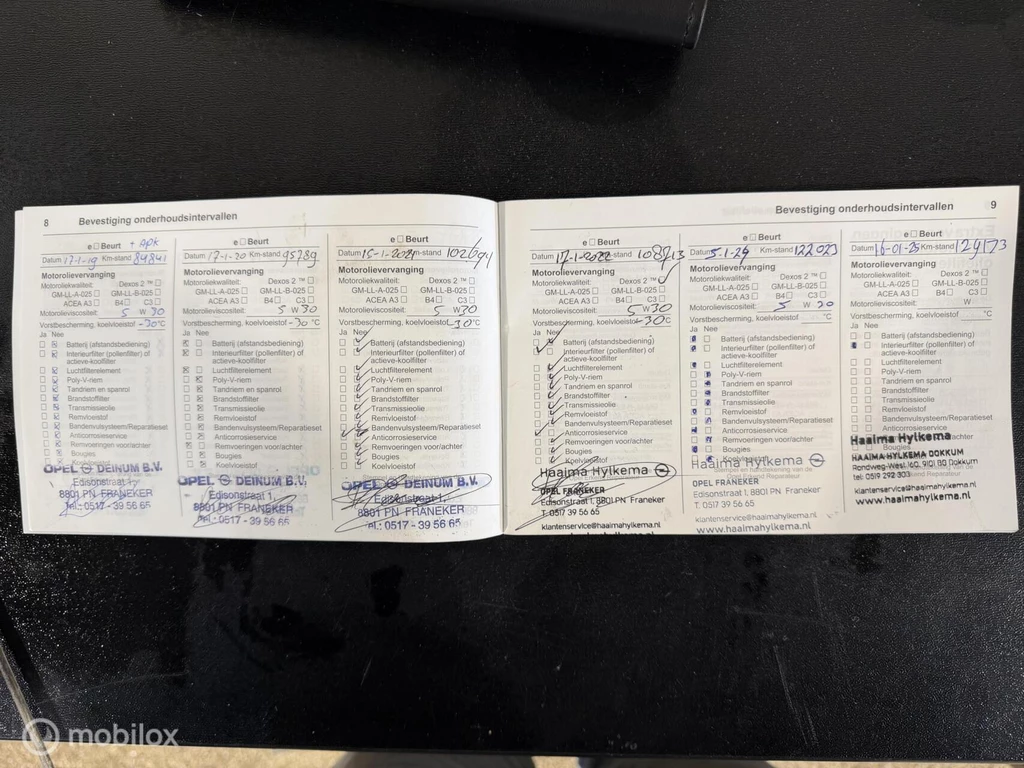 8 Bevestiging onderhoudsintervallen
e Beurt + APK
Datum 17-1-19 Km-stand 84841
Motorolievervanging
Motorkwaliteit: Dexos 2 ™
GM-LL-A-025 GM-LL-B-025
ACEA A3 B4 C3
Motorolieviscositeit: 5 W 30
Vorstbescherming, koelvloeistof -30 °C
Ja Nee
Batterij (afstandsbediening)
Interieurfilter (pollenfilter) of
actieve-koolfilter
Luchtfilterelement
Poly-V-riem
Tandriem en spanrol
Brandstoffilter
Transmissieolie
Remvloeistof
Bandenvulsysteem/Reparatieset
Anticorrosieservice
Remvoeringen voor/achter
Bougies
Koelvloeistof
OPEL DEINUM B.V.
Edisonstraat 1,
8801 PN FRANEKER
Tel.: 0517 - 39 56 65
e Beurt
Datum 17-1-20 Km-stand 95789
Motorolievervanging
Motorkwaliteit: Dexos 2 ™
GM-LL-A-025 GM-LL-B-025
ACEA A3 B4 C3
Motorolieviscositeit: 5 W 30
Vorstbescherming, koelvloeistof -30 °C
Ja Nee
Batterij (afstandsbediening)
Interieurfilter (pollenfilter) of
actieve-koolfilter
Luchtfilterelement
Poly-V-riem
Tandriem en spanrol
Brandstoffilter
Transmissieolie
Remvloeistof
Bandenvulsysteem/Reparatieset
Anticorrosieservice
Remvoeringen voor/achter
Bougies
Koelvloeistof
OPEL DEINUM B.V.
Edisonstraat 1,
8801 PN FRANEKER
Tel.: 0517 - 39 56 65
e Beurt
Datum 15-1-2021 Km-stand
Motorolievervanging
Motorkwaliteit: Dexos 2 ™
GM-LL-A-025 GM-LL-B-025
ACEA A3 B4 C3
Motorolieviscositeit: 5 W 30
Vorstbescherming, koelvloeistof -30 °C
Ja Nee
Batterij (afstandsbediening)
Interieurfilter (pollenfilter) of
actieve-koolfilter
Luchtfilterelement
Poly-V-riem
Tandriem en spanrol
Brandstoffilter
Transmissieolie
Remvloeistof
Bandenvulsysteem/Reparatieset
Anticorrosieservice
Remvoeringen voor/achter
Bougies
Koelvloeistof
OPEL DEINUM B.V.
Edisonstraat 1,
8801 PN FRANEKER
Tel.: 0517 - 39 56 65
Bevestiging onderhoudsintervallen 9
e Beurt
Datum 17-1-2022 Km-stand 108713
Motorolievervanging
Motorkwaliteit: Dexos 2 ™
GM-LL-A-025 GM-LL-B-025
ACEA A3 B4 C3
Motorolieviscositeit: 5 W 30
Vorstbescherming, koelvloeistof -30 °C
Ja Nee
Batterij (afstandsbediening)
Interieurfilter (pollenfilter) of
actieve-koolfilter
Luchtfilterelement
Poly-V-riem
Tandriem en spanrol
Brandstoffilter
Transmissieolie
Remvloeistof
Bandenvulsysteem/Reparatieset
Anticorrosieservice
Remvoeringen voor/achter
Bougies
Koelvloeistof
Haaima Hylkema
OPEL FRANEKER
Edisonstraat 1, 8801 PN Franeker
T: 0517 39 56 65
klantenservice@haaimahylkema.nl
e Beurt
Datum 5-1-24 Km-stand 122023
Motorolievervanging
Motorkwaliteit: Dexos 2 ™
GM-LL-A-025 GM-LL-B-025
ACEA A3 B4 C3
Motorolieviscositeit: 5 W
Vorstbescherming, koelvloeistof °C
Ja Nee
Batterij (afstandsbediening)
Interieurfilter (pollenfilter) of
actieve-koolfilter
Luchtfilterelement
Poly-V-riem
Tandriem en spanrol
Brandstoffilter
Transmissieolie
Remvloeistof
Bandenvulsysteem/Reparatieset
Anticorrosieservice
Remvoeringen voor/achter
Bougies
Haaima Hylkema
OPEL FRANEKER
Edisonstraat 1, 8801 PN Franeker
T: 0517 39 56 65
klantenservice@haaimahylkema.nl
www.haaimahylkema.nl
e Beurt
Datum 16-01-25 Km-stand 129173
Motorolievervanging
Motorkwaliteit: Dexos 2 ™
GM-LL-A-025 GM-LL-B-025
ACEA A3 B4 C3
Motorolieviscositeit: W
Vorstbescherming, koelvloeistof °C
Ja Nee
Batterij (afstandsbediening)
Interieurfilter (pollenfilter) of
actieve-koolfilter
Luchtfilterelement
Poly-V-riem
Tandriem en spanrol
Brandstoffilter
Transmissieolie
Remvloeistof
Bandenvulsysteem/Reparatieset
Anticorrosieservice
Haaima Hylkema
HAAIMA-HYLKEMA DOKKUM
Rondweg-West 160, 9101 BD Dokkum
tel: 0519 292 303
klantenservice@haaimahylkema.nl
www.haaimahylkema.nl
mobilox